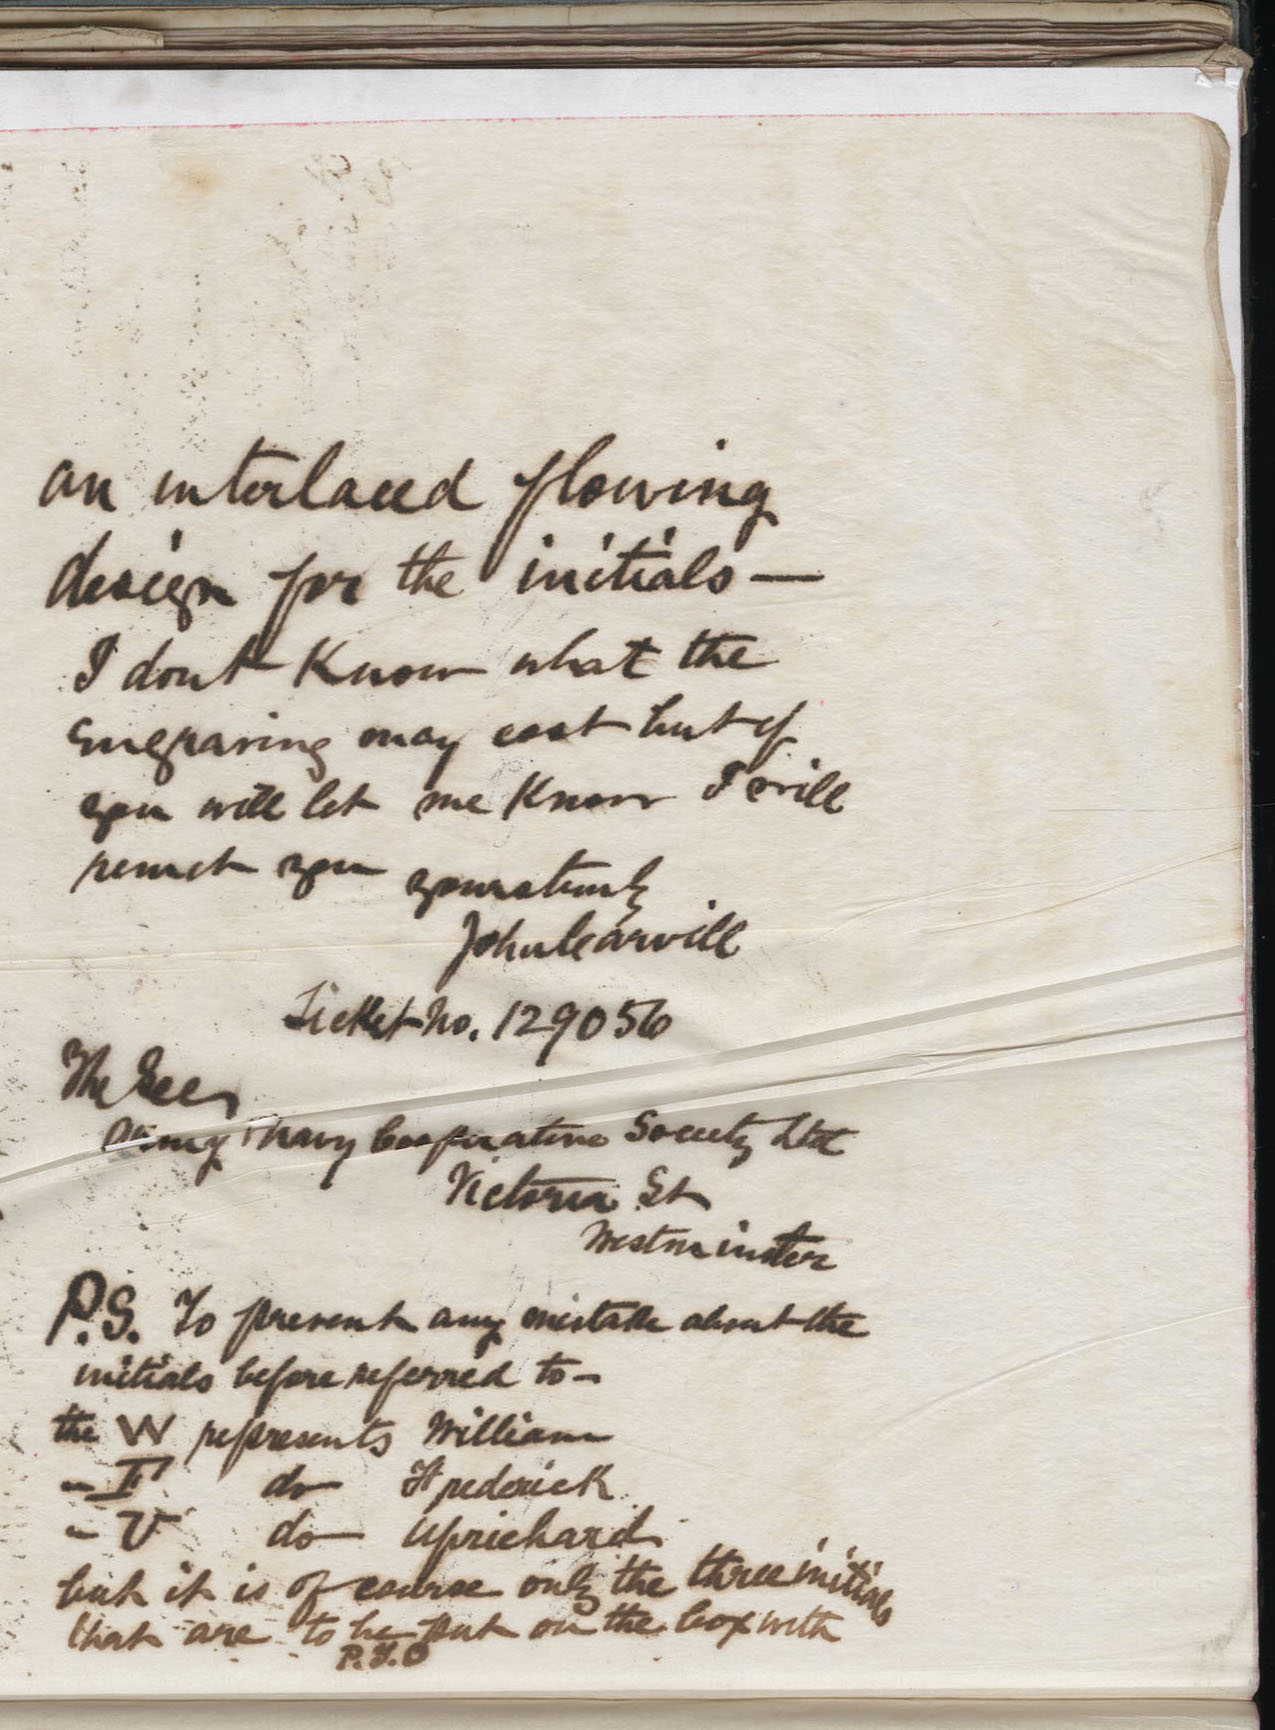 an interlaced flowing
design for the initials —
I dont Know what the
Engraving may cost but if
you will let me Know I will
remit you yours truly
John Carvill
Ticket No. 129056
The Secy
Army & Navy Cooperative Society Ltd
Victoria St
Westminster
P.S. To prevent any mistake about the
initials before referred to –
the W represents William
– F do Frederick
– U do Uprichard
but it is of course only the three initials
that are to be put on the box with
P.T.O